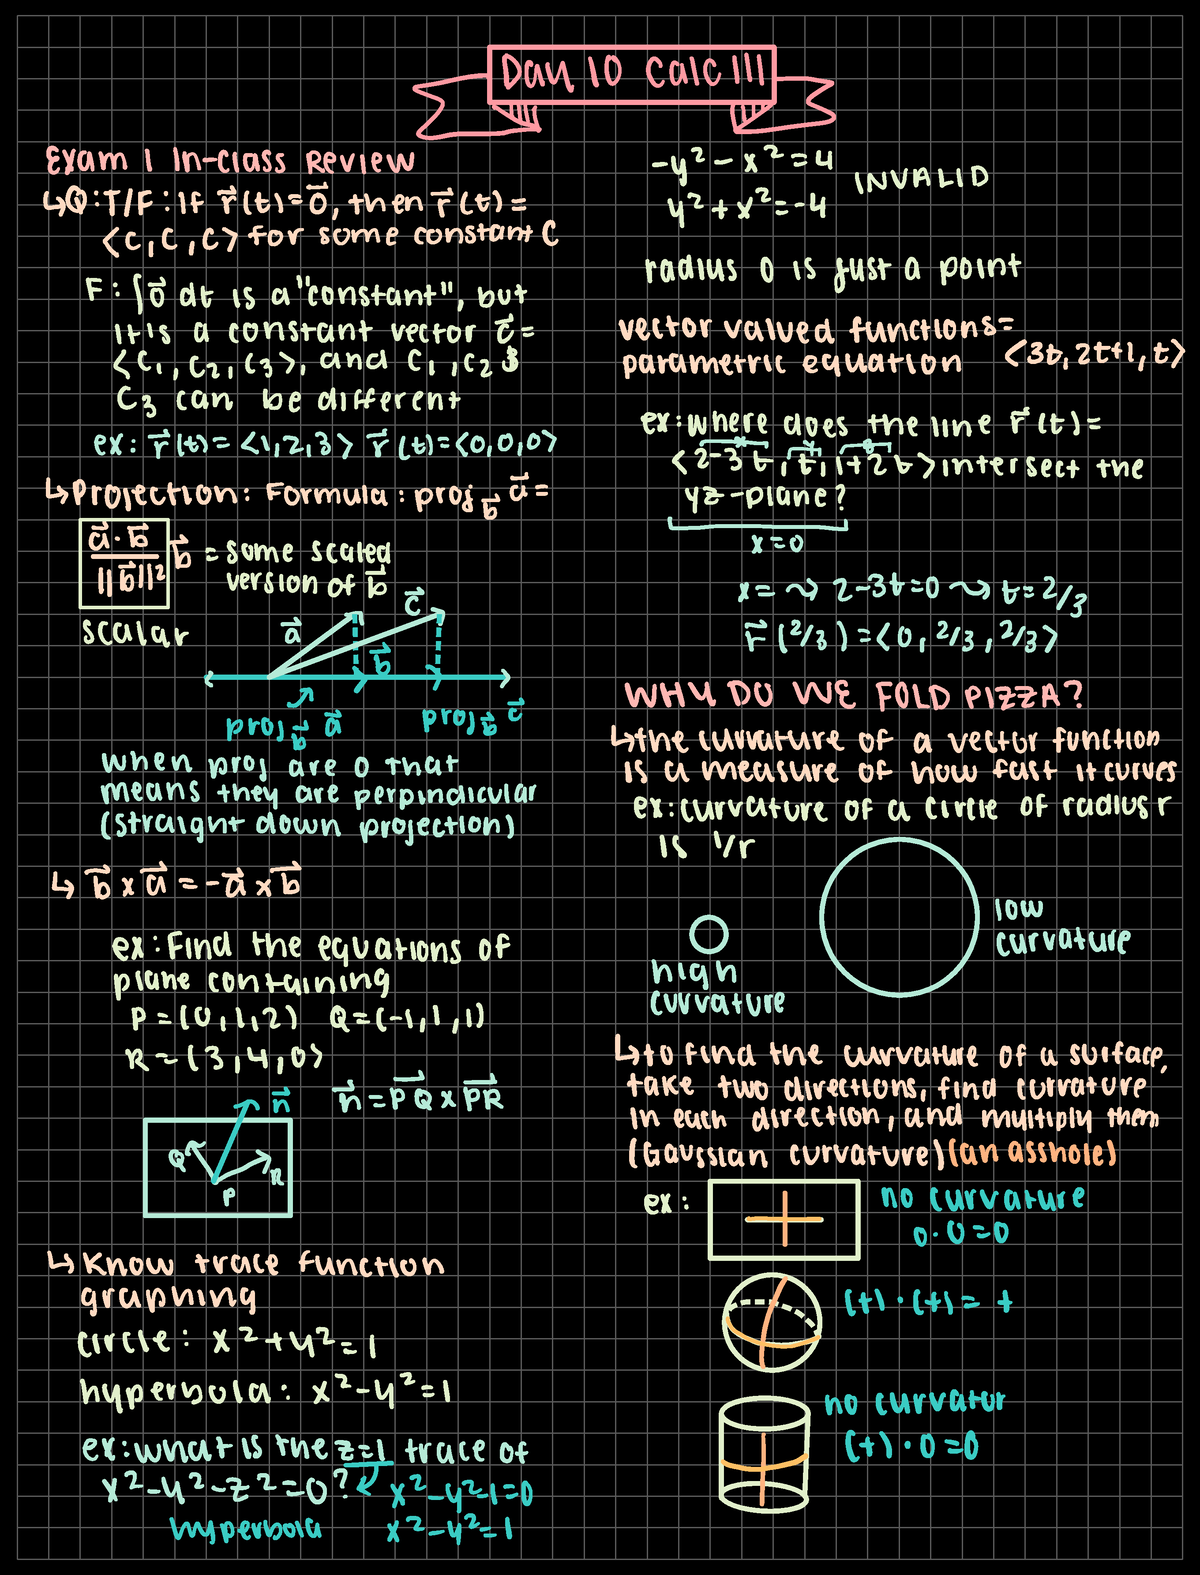 Day 10 Calc III
Exam 1 In-class Review
↳Q:T/F: If r⃗(t)=0⃗, then r⃗(t)=
<C, C, C> for some constant C
F: ∫0⃗ dt is a "constant", but
it is a constant vector c⃗=
<C₁, C₂, C₃>, and C₁, C₂ &
C₃ can be different
ex: r⃗(t)=<1,2,3> r⃗(t)=<0,0,0>
↳Projection: Formula: proj_b⃗ a⃗=
a⃗·b⃗ / ||b⃗||² b⃗ = some scaled
version of b⃗
scalar
a⃗ c⃗
b⃗
proj_b⃗ a⃗ proj_b⃗ c⃗
when proj are 0 that
means they are perpindicular
(straight down projection)
↳ b⃗ x a⃗ = -a⃗ x b⃗
ex: Find the equations of
plane containing
P=(0,1,2) Q=(-1,1,1)
R=(3,4,0)
n⃗ n⃗=PQ⃗ x PR⃗
Q R
P
↳Know trace function
graphing
circle: x²+y²=1
hyperbola: x²-y²=1
ex: what is the z=1 trace of
x²-y²-z²=0? x²-y²-1=0
hyperbola x²-y²=1
-y²-x²=4
INVALID
y²+x²=-4
radius 0 is just a point
vector valued functions=
parametric equation <3t, 2t+1, t>
ex: where does the line r⃗(t)=
x y z
<2-3t, t, 1+2t> intersect the
yz-plane?
x=0
x= ⤳ 2-3t=0 ⤳ t=2/3
r⃗(2/3)=<0, 2/3, 2/3>
WHY DO WE FOLD PIZZA?
↳the curvature of a vector function
is a measure of how fast it curves
ex: curvature of a circle of radius r
is 1/r
low
curvature
high
curvature
↳to find the curvature of a surface,
take two directions, find curvature
in each direction, and multiply them
(Gaussian curvature)(an asshole)
ex: no curvature
0·0=0
(+)·(+)= +
no curvatur
(+)·0=0